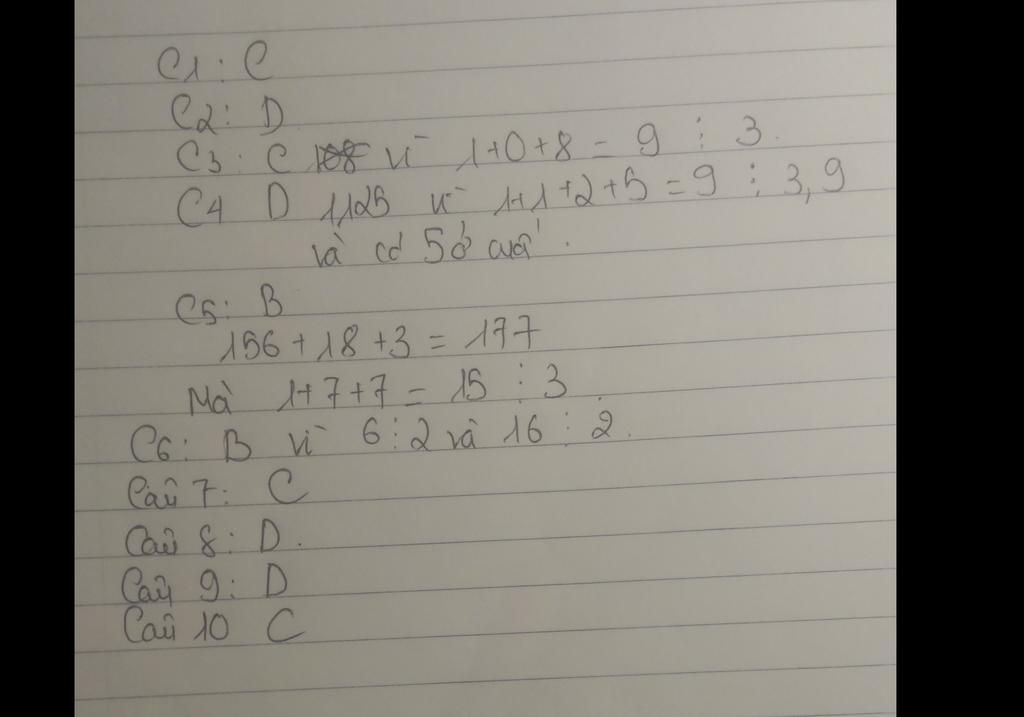 C1: C
C2: D
C3: C 108 vì 1+0+8 = 9 ⋮ 3.
C4 D 1125 vì 1+1+2+5 = 9 ⋮ 3, 9
và có 5 ở cuối.
C5: B
156 + 18 + 3 = 177
Mà 1+7+7 = 15 ⋮ 3.
C6: B vì 6 ⋮ 2 và 16 ⋮ 2.
Câu 7: C
Câu 8: D.
Câu 9: D
Câu 10 C